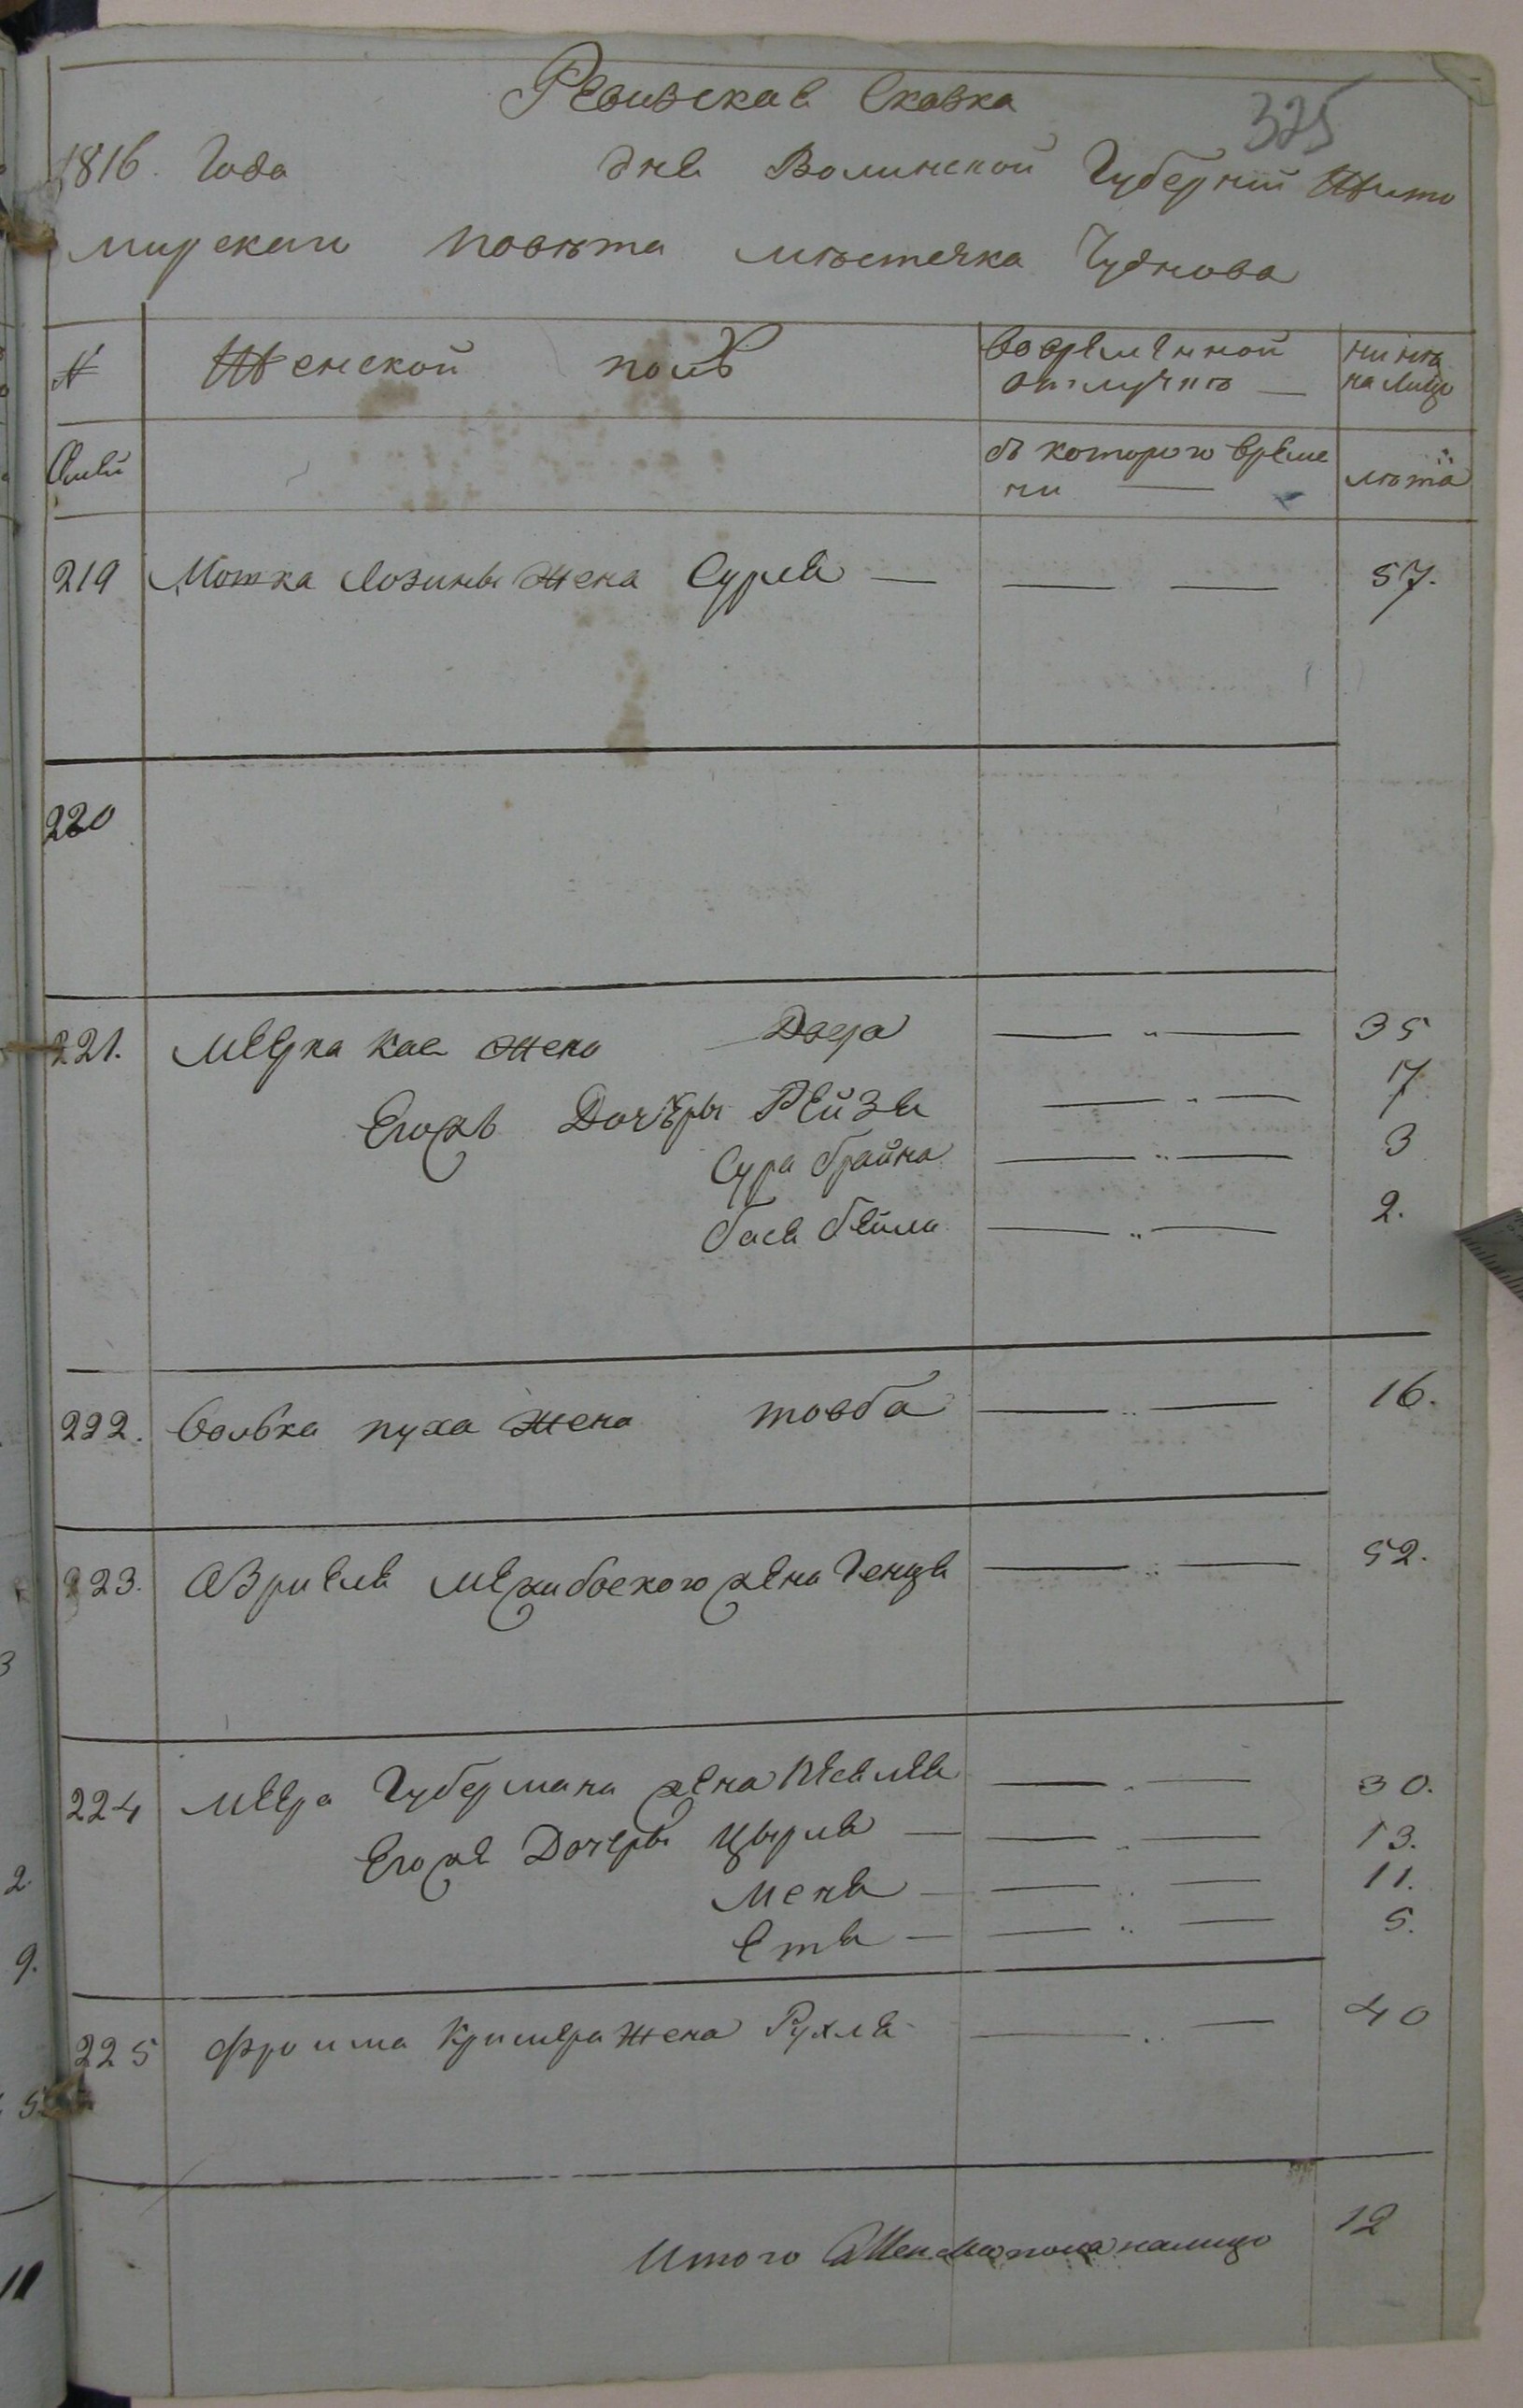 Ревизская Сказка
325
1816. Года дня Волинской Губернии Жито
мирскаго повѣта мѣстечка Чуднова
№ Женской полъ во временной отлучкѣ — нинѣ на лицо
съ которого време ни — лѣта
219 Мошка Лозины жена Сурля — — — 57.
220
221. Меерка Кац жена Двера — „ — 35
Егожъ Дочѣры Рейзя — „ — 17
Сура брайна — „ — 3
бася бейла — „ — 2.
222. Волька пуха жена товба — „ — 16.
223. Азриеля Межибоского жена Генця — „ — 52.
224 Меера Губермана жена — „ — 30.
Егоже Дочеры Цырля — — „ — 13.
Меня — — „ — 11.
Етя — — „ — 5.
225 Фроима Кримера жена Рухля — „ — 40
Итого женска пола налицо 12